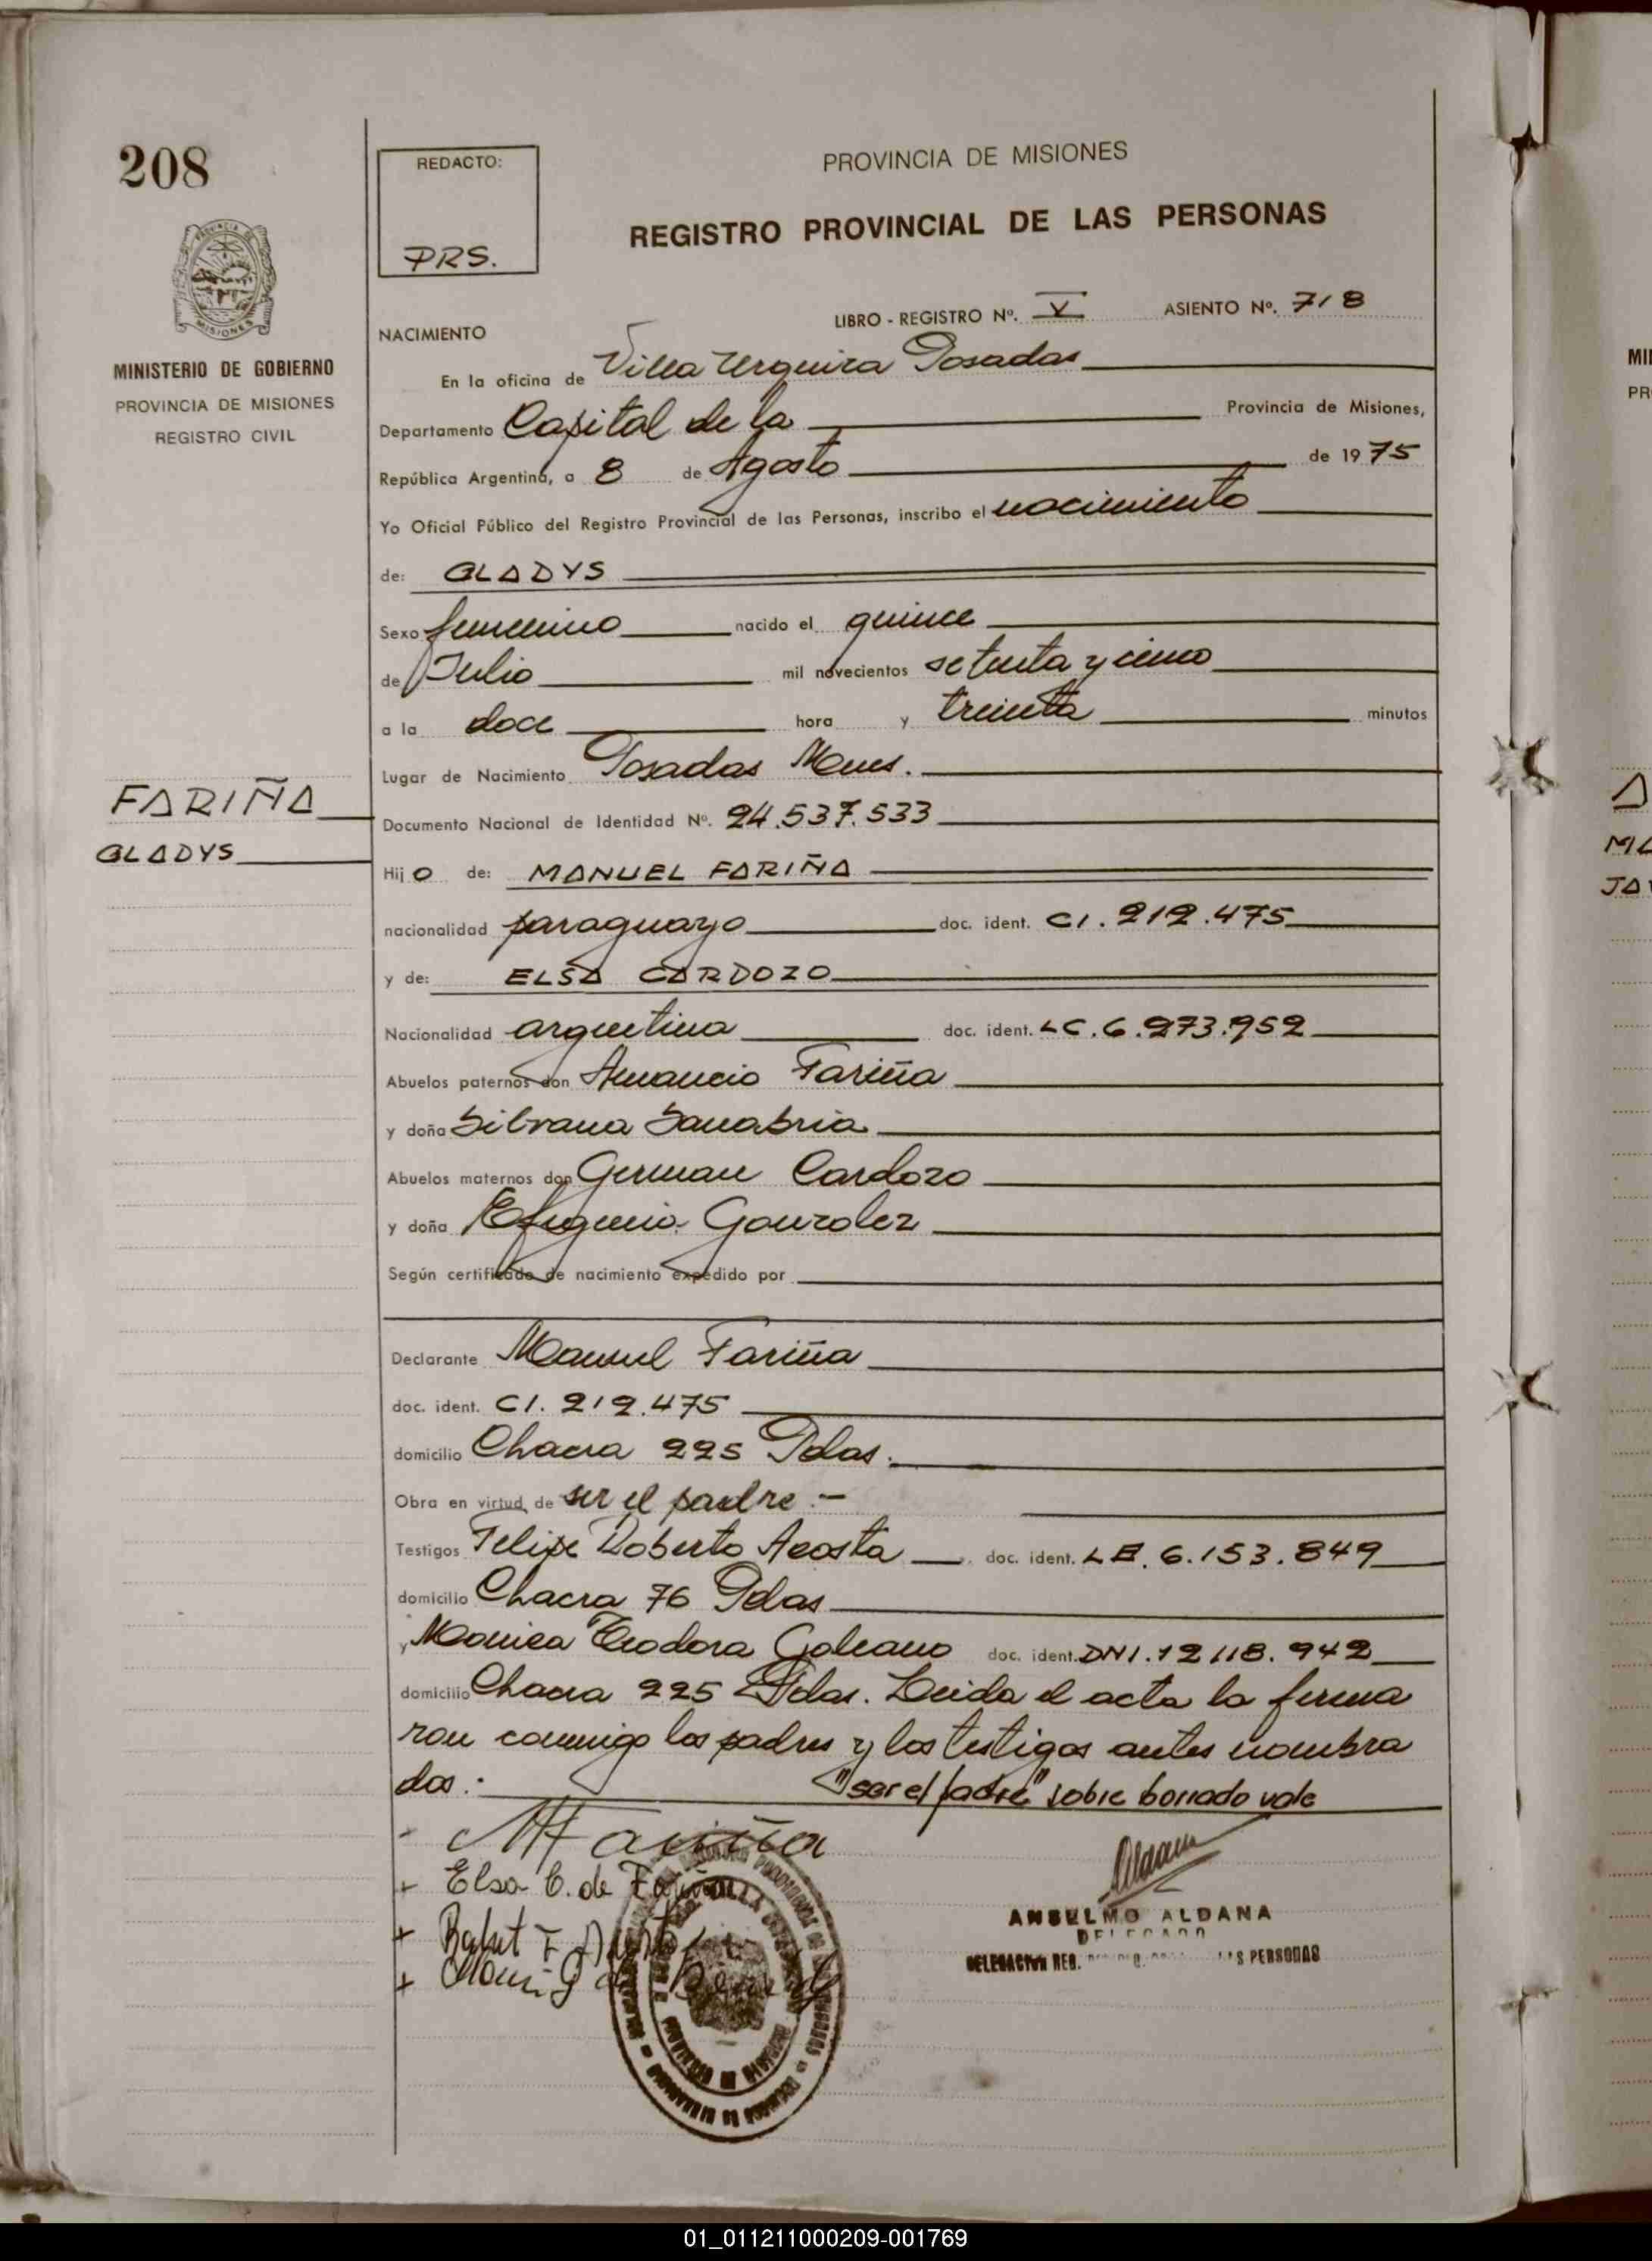 208
REDACTO:
PRS.
PROVINCIA DE MISIONES
REGISTRO PROVINCIAL DE LAS PERSONAS
MINISTERIO DE GOBIERNO
PROVINCIA DE MISIONES
REGISTRO CIVIL
LIBRO - REGISTRO Nº. V ASIENTO Nº. 718
NACIMIENTO
En la oficina de Villa Urquiza Posadas
Departamento Capital de la Provincia de Misiones,
República Argentina, a 8 de Agosto de 1975
Yo Oficial Público del Registro Provincial de las Personas, inscribo el nacimiento
de: GLADYS
Sexo femenino nacido el quince
de Julio mil novecientos setenta y cinco
a la doce hora y treinta minutos
Lugar de Nacimiento Posadas Mnes.
FARIÑA
GLADYS
Documento Nacional de Identidad Nº. 24.537.533
Hijo de: MANUEL FARIÑA
nacionalidad paraguayo doc. ident. CI. 212.475
y de: ELSA CARDOZO
Nacionalidad argentina doc. ident. LC. 6.273.952
Abuelos paternos don Amancio Fariña
y doña Silvana Sanabria
Abuelos maternos don German Cardozo
y doña Efigenia Gonzalez
Según certificado de nacimiento expedido por
Declarante Manuel Fariña
doc. ident. CI. 212.475
domicilio Chacra 225 Pdas.
Obra en virtud de ser el padre.-
Testigos Felipe Roberto Acosta doc. ident. LE. 6.153.849
domicilio Chacra 76 Pdas
y Monica Teodora Galeano doc. ident. DNI. 12.118.942
domicilio Chacra 225 Pdas. Leida el acta la firma
ron conmigo los padres y los testigos antes nombra
dos.- "ser el padre" sobre borrado vale
M Fariña
Elsa C. de Fariña
ANSELMO ALDANA
DELEGADO
DELEGACION REG. LAS PERSONAS
PROVINCIA DE MISIONES
01_011211000209-001769